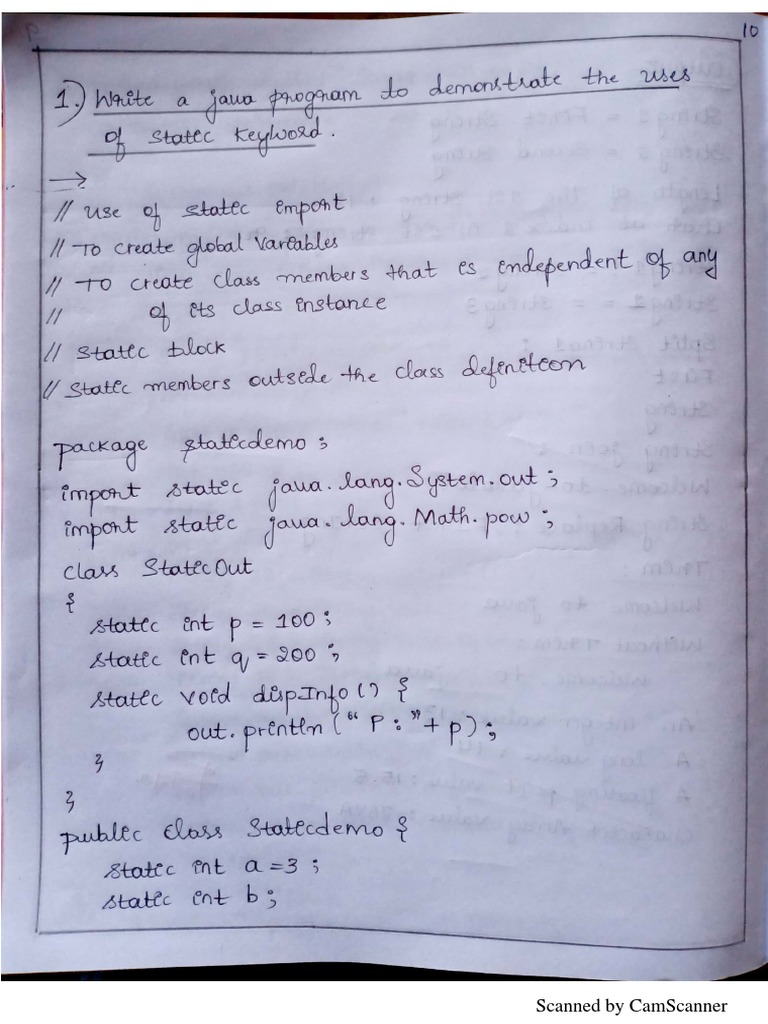 10
1.) Write a java program to demonstrate the uses
of static keyword.
→
// use of static import
// To create global variables
// To create class members that is independent of any
// of its class instance
// static block
// static members outside the class definition
package staticdemo;
import static java.lang.System.out;
import static java.lang.Math.pow;
class StaticOut
{
static int p = 100;
static int q = 200;
static void dispInfo() {
out.println("P:"+p);
}
}
public class Staticdemo {
static int a=3;
static int b;
Scanned by CamScanner